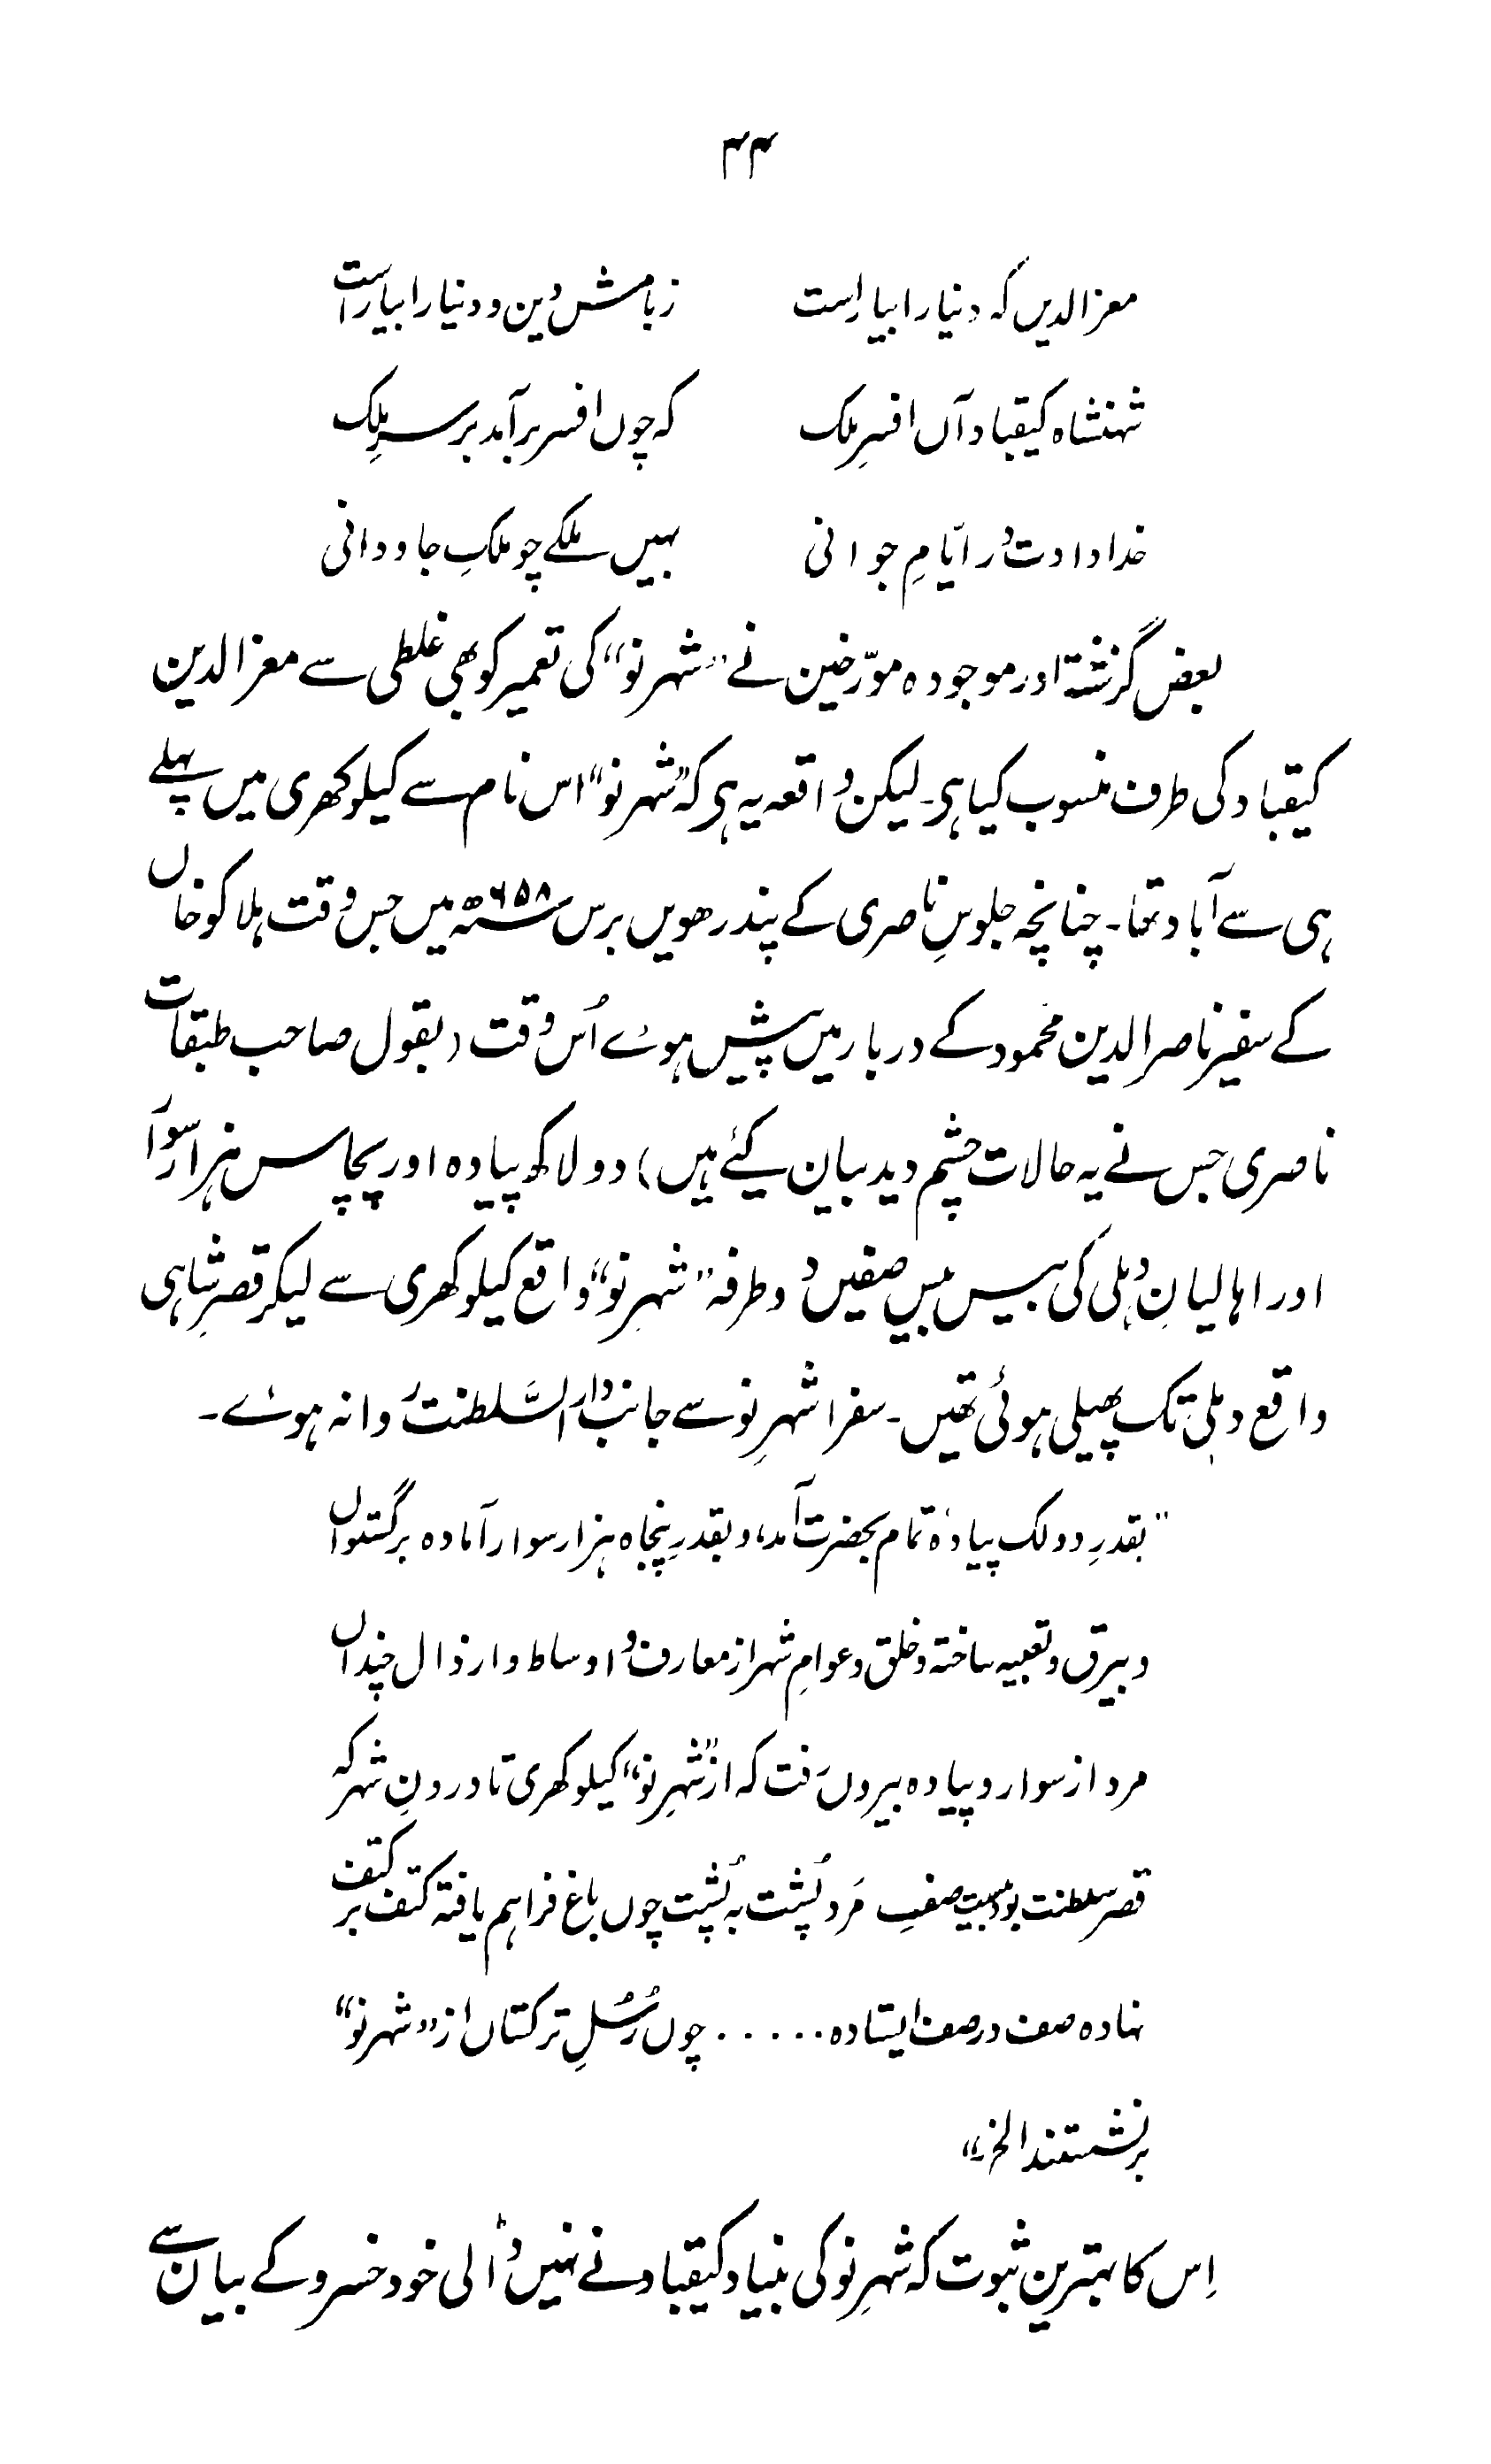 ۴۴
معز الدیں کہ دنیا را بیاراست زبامش دین و دنیا را بیاراست
شہنشاہ کیقباد آں افسرِ ملک کہ چوں افسر برآمد بر سرِ ملک
خدا دادت در ایّامِ جوانی بہیں ملکے چو ملکِ جاودانی
بعض گزشتہ اور موجودہ مورّخین نے "شہر نو" کی تعمیر کو بھی غلطی سے معز الدین
کیقباد کی طرف منسوب کیا ہی۔ لیکن واقعہ یہ ہی کہ "شہر نو" اس نام سے کیلوکھری میں پہلے
ہی سے آباد تھا۔ چنانچہ جلوسِ ناصری کے پندرھویں برس ۶۵۸ھ میں جس وقت ہلاکو خاں
کے سفیر ناصر الدین محمود کے دربار میں پیش ہوے اُس وقت (بقول صاحب طبقات
ناصری جس نے یہ حالات چشم دید بیان کیئے ہیں) دو لاکھ پیادہ اور پچاس ہزار سوار
اور اہالیانِ دہلی کی بیس بیس صفیں دو طرفہ "شہرِ نو" واقع کیلوکھری سے لیکر قصرِ شاہی
واقع دہلی تک پھیلی ہوئی تھیں۔ سفرا شہرِ نو سے جانب دار السَّلطنت روانہ ہوے۔
"بقدرِ دو لک پیادۂ تمام بحضرت آمد، و بقدرِ پنجاہ ہزار سوار آمادہ برگستواں
و بیرق و تعبیہ ساختہ و خلق و عوامِ شہر از معارف و اوساط و ارذال چنداں
مرد از سوار و پیادہ بیروں رفت کہ از "شہرِ نو" کیلوکھری تا درونِ شہر کہ
قصر سلطنت بود بیست صفِ مَرد پُشت بہ پُشت چوں باغ فراہم یافتہ کتف بر کتف
نہادہ صف در صف ایستادہ ..... چوں رُسُلِ ترکستاں از "شہر نو"
بر نشستند الخ"
اِس کا بہترین ثبوت کہ شہرِ نو کی بنیاد کیقباد نے نہیں ڈالی خود خسرو کے بیان سے